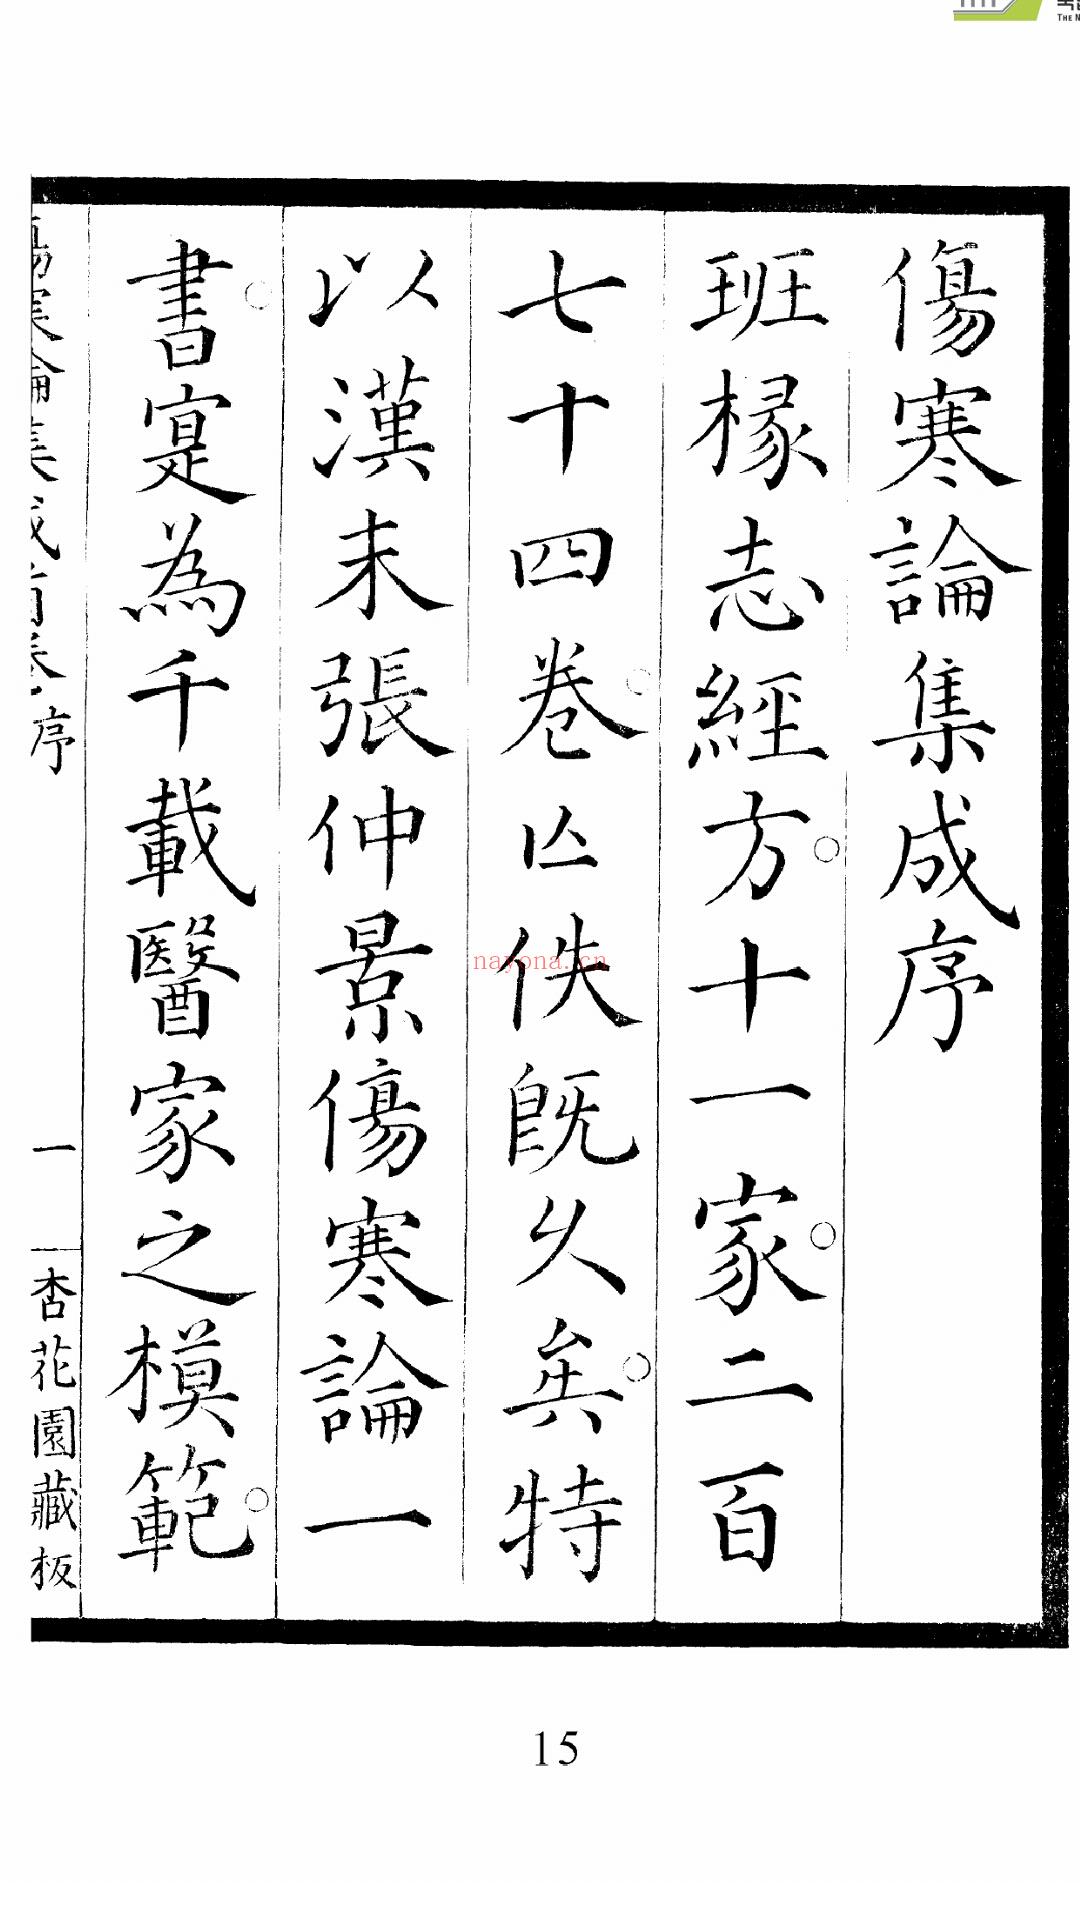 傷寒論集成序
班椽志經方○十一家○二百
七十四卷○亾佚既久矣○特
以漢末張仲景傷寒論一
書○寔為千載醫家之模範○
傷寒論集成首卷 序
一
杏花園藏板
nayona.cn
15
THE N